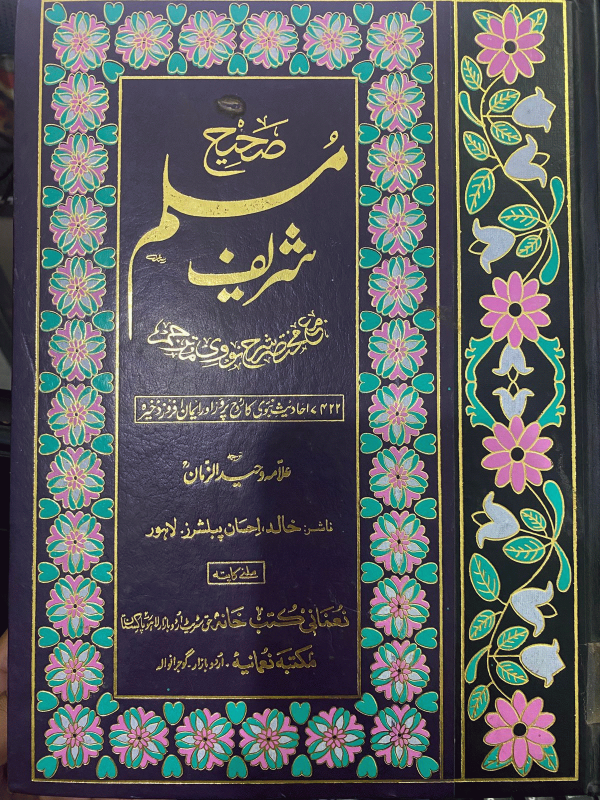 صحیح
مسلم
شریف
مع مختصر شرح نووی مترجم
۷۴۲۲ احادیث نبوی کا روح پرور اور ایمان افروز ذخیرہ
ترجمہ
علامہ وحید الزمان
ناشر: خالد احسان پبلشرز۔ لاہور
ملنے کا پتہ
نعمانی کتب خانہ حق سٹریٹ اردو بازار لاہور پاکستان
مکتبہ نعمانیہ ۔ اردو بازار ۔ گوجرانوالہ